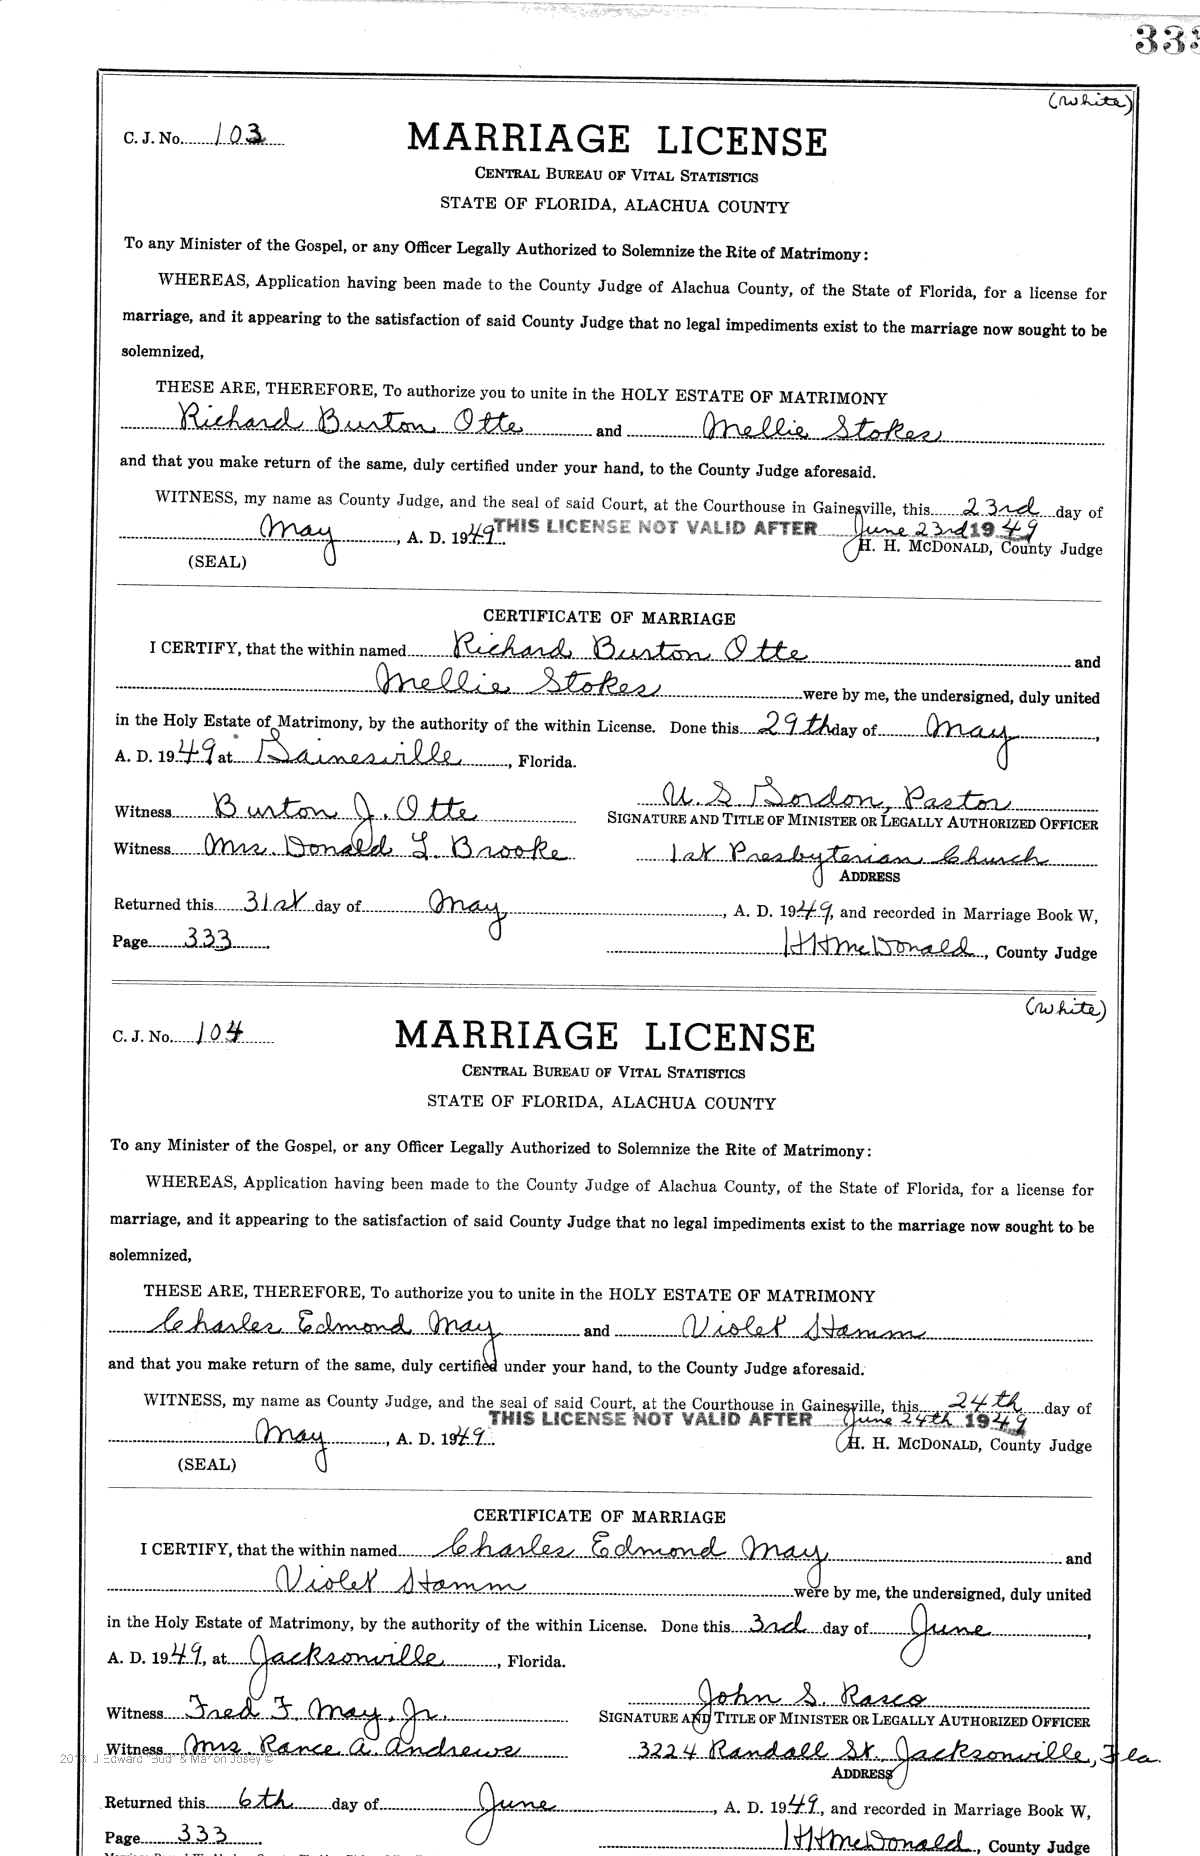 333
(White)
C. J. No. 103
MARRIAGE LICENSE
CENTRAL BUREAU OF VITAL STATISTICS
STATE OF FLORIDA, ALACHUA COUNTY
To any Minister of the Gospel, or any Officer Legally Authorized to Solemnize the Rite of Matrimony:
WHEREAS, Application having been made to the County Judge of Alachua County, of the State of Florida, for a license for
marriage, and it appearing to the satisfaction of said County Judge that no legal impediments exist to the marriage now sought to be
solemnized,
THESE ARE, THEREFORE, To authorize you to unite in the HOLY ESTATE OF MATRIMONY
Richard Burton Otte and Mellie Stokes
and that you make return of the same, duly certified under your hand, to the County Judge aforesaid.
WITNESS, my name as County Judge, and the seal of said Court, at the Courthouse in Gainesville, this 23rd day of
May, A. D. 1949. THIS LICENSE NOT VALID AFTER June 23rd 1949
(SEAL) H. H. MCDONALD, County Judge
CERTIFICATE OF MARRIAGE
I CERTIFY, that the within named Richard Burton Otte and
Mellie Stokes were by me, the undersigned, duly united
in the Holy Estate of Matrimony, by the authority of the within License. Done this 29th day of May,
A. D. 1949 at Gainesville, Florida.
U. S. Gordon, Pastor
Witness Burton J. Otte SIGNATURE AND TITLE OF MINISTER OR LEGALLY AUTHORIZED OFFICER
Witness Mrs. Donald L. Brooke 1st Presbyterian Church
ADDRESS
Returned this 31st day of May, A. D. 1949, and recorded in Marriage Book W,
Page 333. HHMcDonald, County Judge
(White)
C. J. No. 104
MARRIAGE LICENSE
CENTRAL BUREAU OF VITAL STATISTICS
STATE OF FLORIDA, ALACHUA COUNTY
To any Minister of the Gospel, or any Officer Legally Authorized to Solemnize the Rite of Matrimony:
WHEREAS, Application having been made to the County Judge of Alachua County, of the State of Florida, for a license for
marriage, and it appearing to the satisfaction of said County Judge that no legal impediments exist to the marriage now sought to be
solemnized,
THESE ARE, THEREFORE, To authorize you to unite in the HOLY ESTATE OF MATRIMONY
Charles Edmond May and Violet Stamm
and that you make return of the same, duly certified under your hand, to the County Judge aforesaid.
WITNESS, my name as County Judge, and the seal of said Court, at the Courthouse in Gainesville, this 24th day of
May, A. D. 1949. THIS LICENSE NOT VALID AFTER June 24th 1949
(SEAL) H. H. MCDONALD, County Judge
CERTIFICATE OF MARRIAGE
I CERTIFY, that the within named Charles Edmond May and
Violet Stamm were by me, the undersigned, duly united
in the Holy Estate of Matrimony, by the authority of the within License. Done this 3rd day of June,
A. D. 1949, at Jacksonville, Florida.
John S. Rasco
Witness Fred F. May, Jr. SIGNATURE AND TITLE OF MINISTER OR LEGALLY AUTHORIZED OFFICER
Witness Mrs Rance A. Andrews 3224 Randall St. Jacksonville, Fla.
ADDRESS
Returned this 6th day of June, A. D. 1949, and recorded in Marriage Book W,
Page 333. HHMcDonald, County Judge